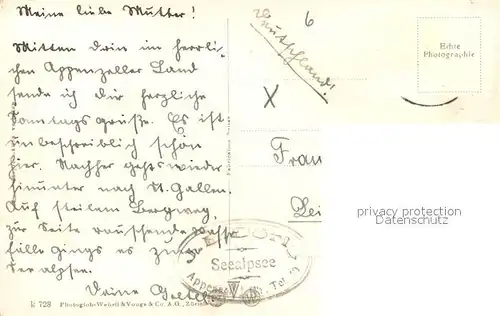 Meine liebe Mutter!
Mitten drin im herrli-
chen Appenzeller Land
sende ich dir herzliche
Sonntagsgrüße. Es ist
unbeschreiblich schön
hier. Nachher gehts wieder
hinunter nach St. Gallen.
Auf steilem Bergweg,
zur Seite rauschende Wasser
fälle gings es zur
Seealpsee.
Deine Gretel.
k 728 Photoglob-Wehrli & Vouga & Co. A.G., Zürich
6
Deutschland!
X
Echte
Photographie
Frau
Lei
privacy protection
Datenschutz
Seealpsee
Appenzell Tel.